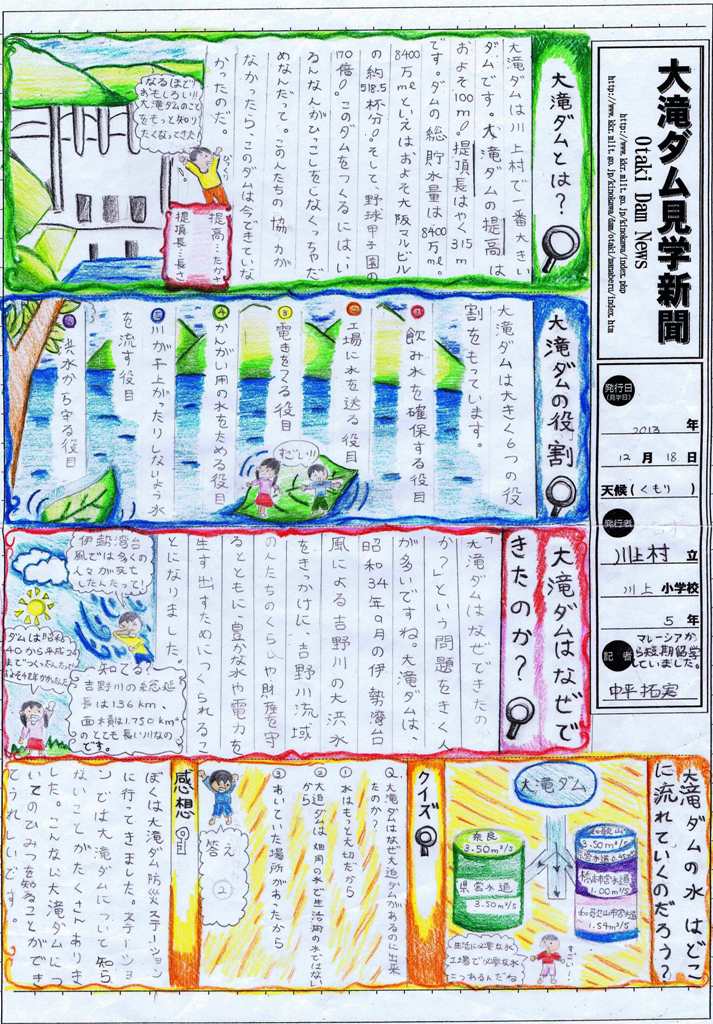 大滝ダム見学新聞
Otaki Dam News
http://www.kkr.mlit.go.jp/kinokawa/index.php
http://www.kkr.mlit.go.jp/kinokawa/dam/otaki/manaberu/index.htm
発行日
(見学日)
2013 年
12 月 18 日
天候(くもり)
発行者
川上村 立
川上 小学校
5 年
記者
マレーシアか
ら短期留学
していました。
中平拓実
大滝ダムとは?
大滝ダムは川上村で一番大きい
ダムです。大滝ダムの提高は
およそ100m!提頂長はやく315m
です。ダムの総貯水量は8400万㎥。
8400万㎥といえばおよそ大阪マルビル
の約518.5杯分!そして、野球甲子園の
170倍!このダムをつくるには、い
ろんなんがひっこしをしなくっちゃだ
めなんだって。このんたちの協力が
なかったら、このダムは今できていな
かったのだ。
びっくり
なるほど!
おもしろい!!
大滝ダムのこと
をもっと知り
たくなってきた!
提高…たかさ
提頂長…長さ
大滝ダムの役割
大滝ダムは大きく6つの役
割をもっています。
①飲み水を確保する役目
②工場に水を送る役目
③電きをつくる役目
④かんがい用の水をためる役目
⑤川が干上がったりしないよう水
を流す役目
⑥洪水から守る役目
すごーい!!
大滝ダムはなぜで
きたのか?
「大滝ダムはなぜできたの
か?」という問題をきく人
が多いですね。大滝ダムは、
昭和34年9月の伊勢湾台
風による吉野川の大洪水
をきっかけに、吉野川流域
のんたちのくらしや財産を守
るとともに、豊かな水や電力を
生み出すためにつくられるこ
とになりました。
伊勢湾台
風では多くの
人々が死亡
したんたって!
知てる?
吉野川の総延
長は136km、
面積は1.750km²
のとても長い川なの
です。
ダムは昭和
40から平成24
までつくったんだって
およそ47年かかったんだ
大滝ダムの水はどこ
に流れていくのだろう?
大滝ダム
奈良
3.50m³/S
県営水道
3.50m³/S
和歌山
3.50m³/S
橋本市営水道
1.00m³/S
和歌山市営水道
1.54m³/S
生活に必要な水
工場で必要な水
につかれるんだね
すごーい!
クイズ
Q.大滝ダムはなぜ大迫ダムがあるのに出来
たのか?
①水はもっと大切だから
②大迫ダムは畑用の水で生活用の水ではない
から
③あいていた場所があったから
答え
②
感想
ぼくは大滝ダム防災ステーション
に行ってきました。ステーショ
ンでは大滝ダムについて知ら
ないことがたくさんありま
した。こんない大滝ダムにつ
いてのひみつを知ることができ
てうれしいです。